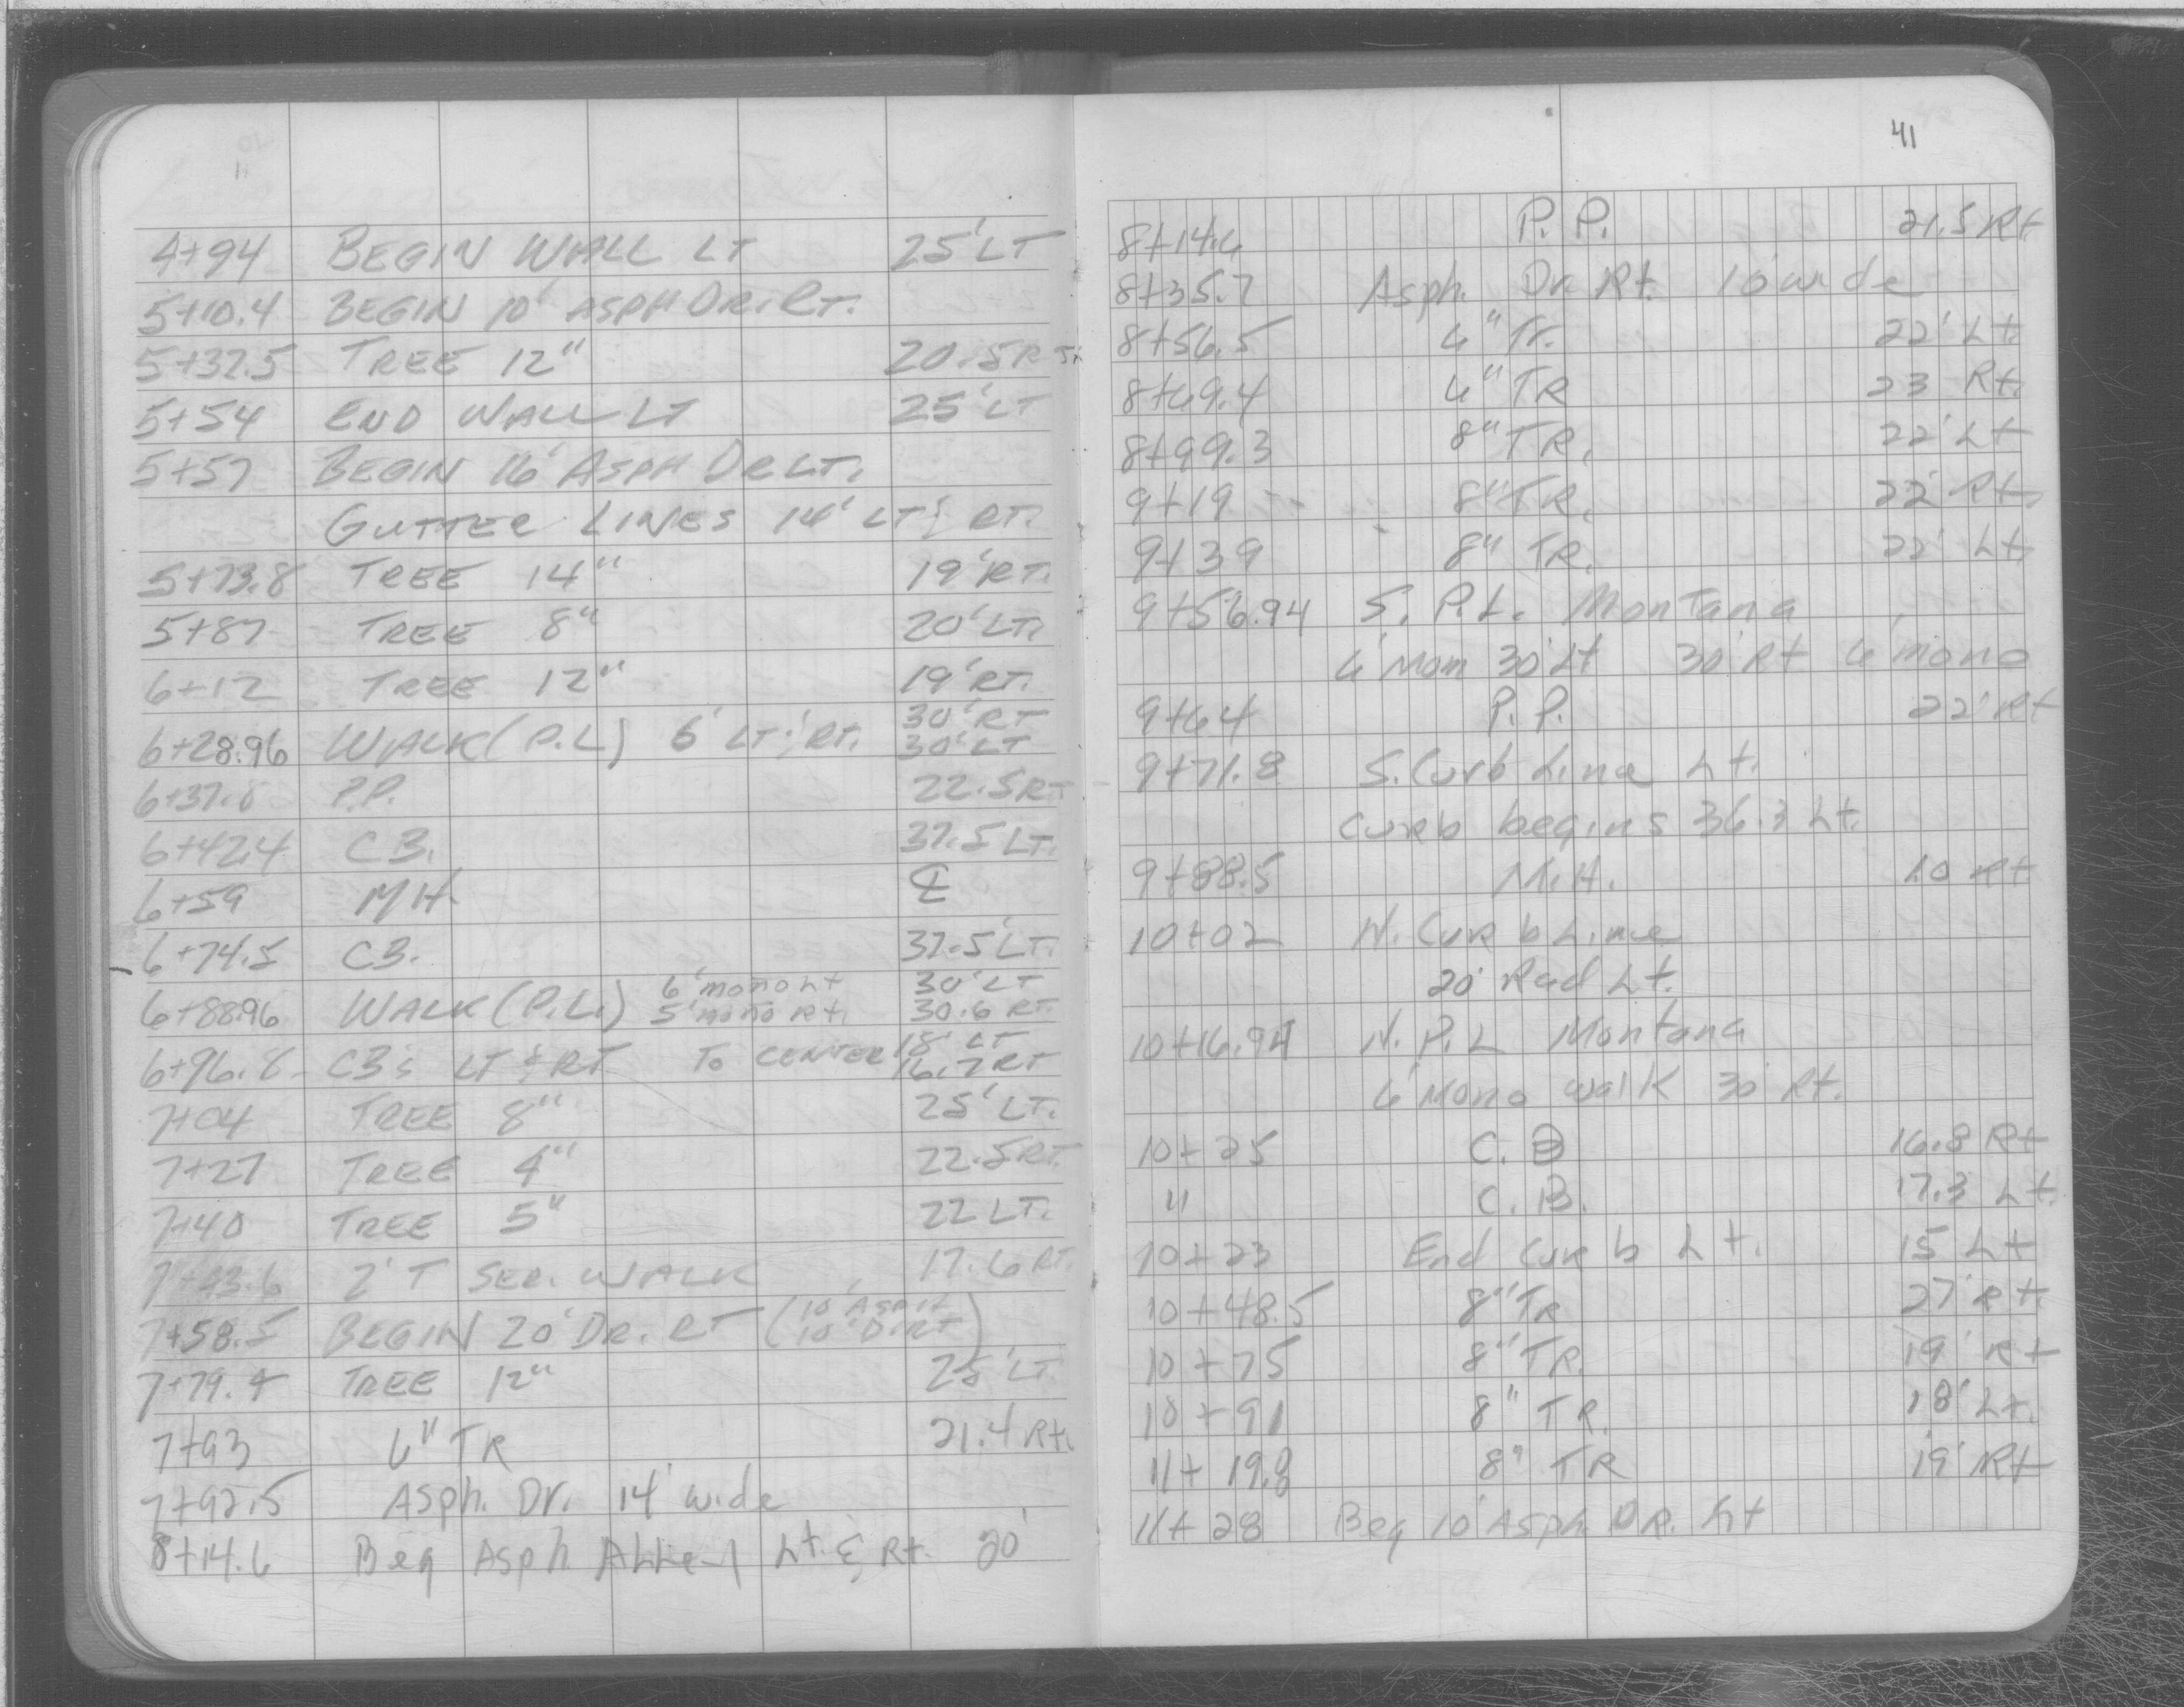 4+94 BEGIN WALL LT 25' LT
5+10.4 BEGIN 10' ASPH DR. RT.
5+37.5 TREE 12" 20.5 RT
5+54 END WALL LT 25' LT
5+57 BEGIN 16' ASPH DR LT.
GUTTER LINES 14' LT & RT.
5+73.8 TREE 14" 19' RT.
5+87 TREE 8" 20' LT.
6+12 TREE 12" 19' RT.
6+28.96 WALK (P.L) 6' LT & RT. 30' RT
30' LT
6+37.8 P.P. 22.5 RT
6+42.4 CB. 37.5 LT.
6+59 MH ℄
6+74.5 CB. 37.5' LT.
6+88.96 WALK (P.L.) 6' mono Lt 30' LT
5' mono Rt. 30.6 RT.
6+96.8 CB's LT & RT TO CENTER 18' LT
16.7 RT
7+04 TREE 8" 25' LT.
7+27 TREE 4" 22.5 RT.
7+40 TREE 5" 22 LT.
7+43.6 2' T SER. WALK 17.6 RT.
7+58.5 BEGIN 20' DR. RT (10' ASPH
10' DIRT)
7+79.4 TREE 12" 25' LT
7+93 6" TR 21.4 Rt.
7+92.5 Asph. Dr. 14' wide
8+14.6 Beg Asph Alley Lt. & Rt. 20'
41
8+14.6 P.P. 21.5 Rt.
8+35.7 Asph. Dr. Rt. 10' wide
8+56.5 6" Tr. 22' Lt.
8+69.4 6" TR 23 Rt.
8+99.3 8" TR. 22' Lt
9+19 8" TR. 22' Rt.
9+39 8" TR. 22' Lt.
9+56.94 S. P.L. Montana
6' Mon 30' Lt 30' Rt 6' mono
9+64 P.P. 22' Rt
9+71.8 S. Curb Line Lt.
Curb begins 36.3 Lt.
9+88.5 M.H. 1.0 Rt
10+02 N. Curb Line
20' Rad Lt.
10+16.94 N. P.L Montana
6' Mono walk 30' Rt.
10+25 C.B 16.8 Rt
" C.B. 17.3 Lt.
10+23 End Curb Lt. 15 Lt
10+48.5 8" TR 27' Rt.
10+75 8" TR. 19' Rt
10+91 8" TR. 18' Lt.
11+19.8 8" TR 19' Rt
11+28 Beg 10' Asph. DR. Lt